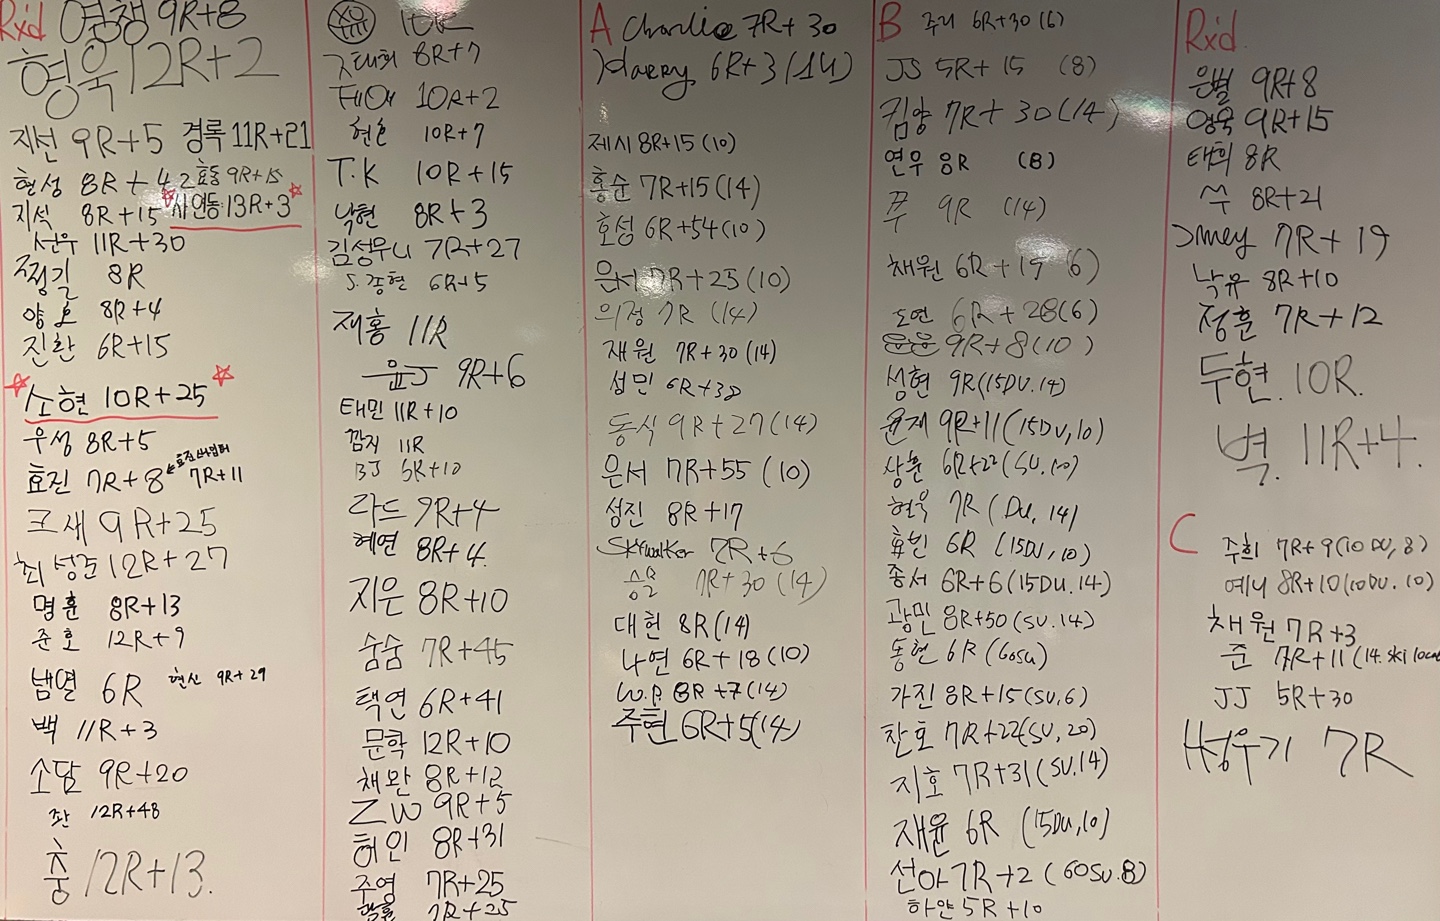 Rxd 영챙 9R+8
형욱 12R+2
지선 9R+5 경록 11R+21
현성 8R+42 효동 9R+15
지석 8R+15 사연동 13R+3
선우 11R+30
찡길 8R
양호 8R+4
진환 6R+15
소현 10R+25
우성 8R+5
효진 7R+8 7R+11
크새 9R+25
최성준 12R+27
명훈 8R+13
준호 12R+9
냄열 6R 현산 9R+29
백 11R+3
소담 9R+20
좌 12R+48
충 12R+13.
10R
조태희 8R+7
테여 10R+2
현호 10R+7
T.K 10R+15
낙현 8R+3
김성우니 7R+27
S. 종현 6R+5
재홍 11R
윤J 9R+6
태민 11R+10
깜직 11R
BJ 6R+10
라드 9R+4
혜연 8R+4
지은 8R+10
숨숨 7R+45
택연 6R+41
문학 12R+10
채완 8R+12
ZW 9R+5
허인 8R+31
주영 7R+25
7R+25
A Charlie 7R+30
Harry 6R+3(14)
제시 8R+15(10)
홍순 7R+15(14)
호성 6R+54(10)
은서 7R+25(10)
의정 7R (14)
재원 7R+30(14)
성민 6R+38
동식 9R+27(14)
은서 7R+55(10)
성진 8R+17
Skywalker 7R+6
승요 7R+30(14)
대헌 8R(14)
나연 6R+18(10)
W.P. 8R+7(14)
주현 6R+5(14)
B 주리 6R+30(6)
JS 5R+15 (8)
김양 7R+30(14)
연우 8R (8)
쭈 9R (14)
채원 6R+19 (6)
도연 6R+28(6)
윤윤 9R+8(10)
성현 9R(15DU.14)
윤재 9R+11(15DU,10)
상훈 6R+22(SU.10)
현욱 7R(DU, 14)
효빈 6R (15DU,10)
종서 6R+6(15DU.14)
광민 8R+50(SU.14)
동현 6R(60SU)
가진 8R+15(SU,6)
찬호 7R+22(SU,20)
지호 7R+31(SU.14)
재윤 6R (15DU,10)
선아 7R+2 (60SU.8)
하얀 5R+10
Rxd
은별 9R+8
영욱 9R+15
태희 8R
쑤 8R+21
7R+19
낙유 8R+10
정훈 7R+12
두현. 10R.
벽. 11R+4.
C 주희 7R+9(10DU,8)
예니 8R+10(10DU.10)
채원 7R+3
준 7R+11(14.ski local
JJ 5R+30
7R